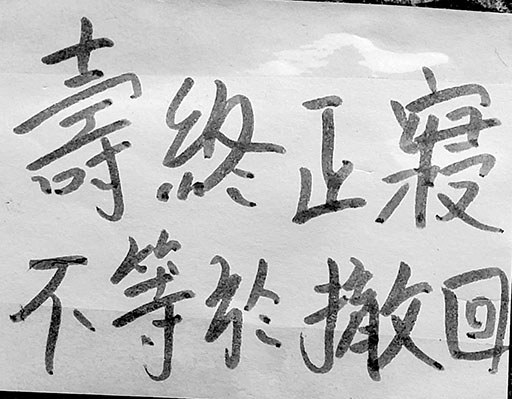 壽終正寢
不等於撤回